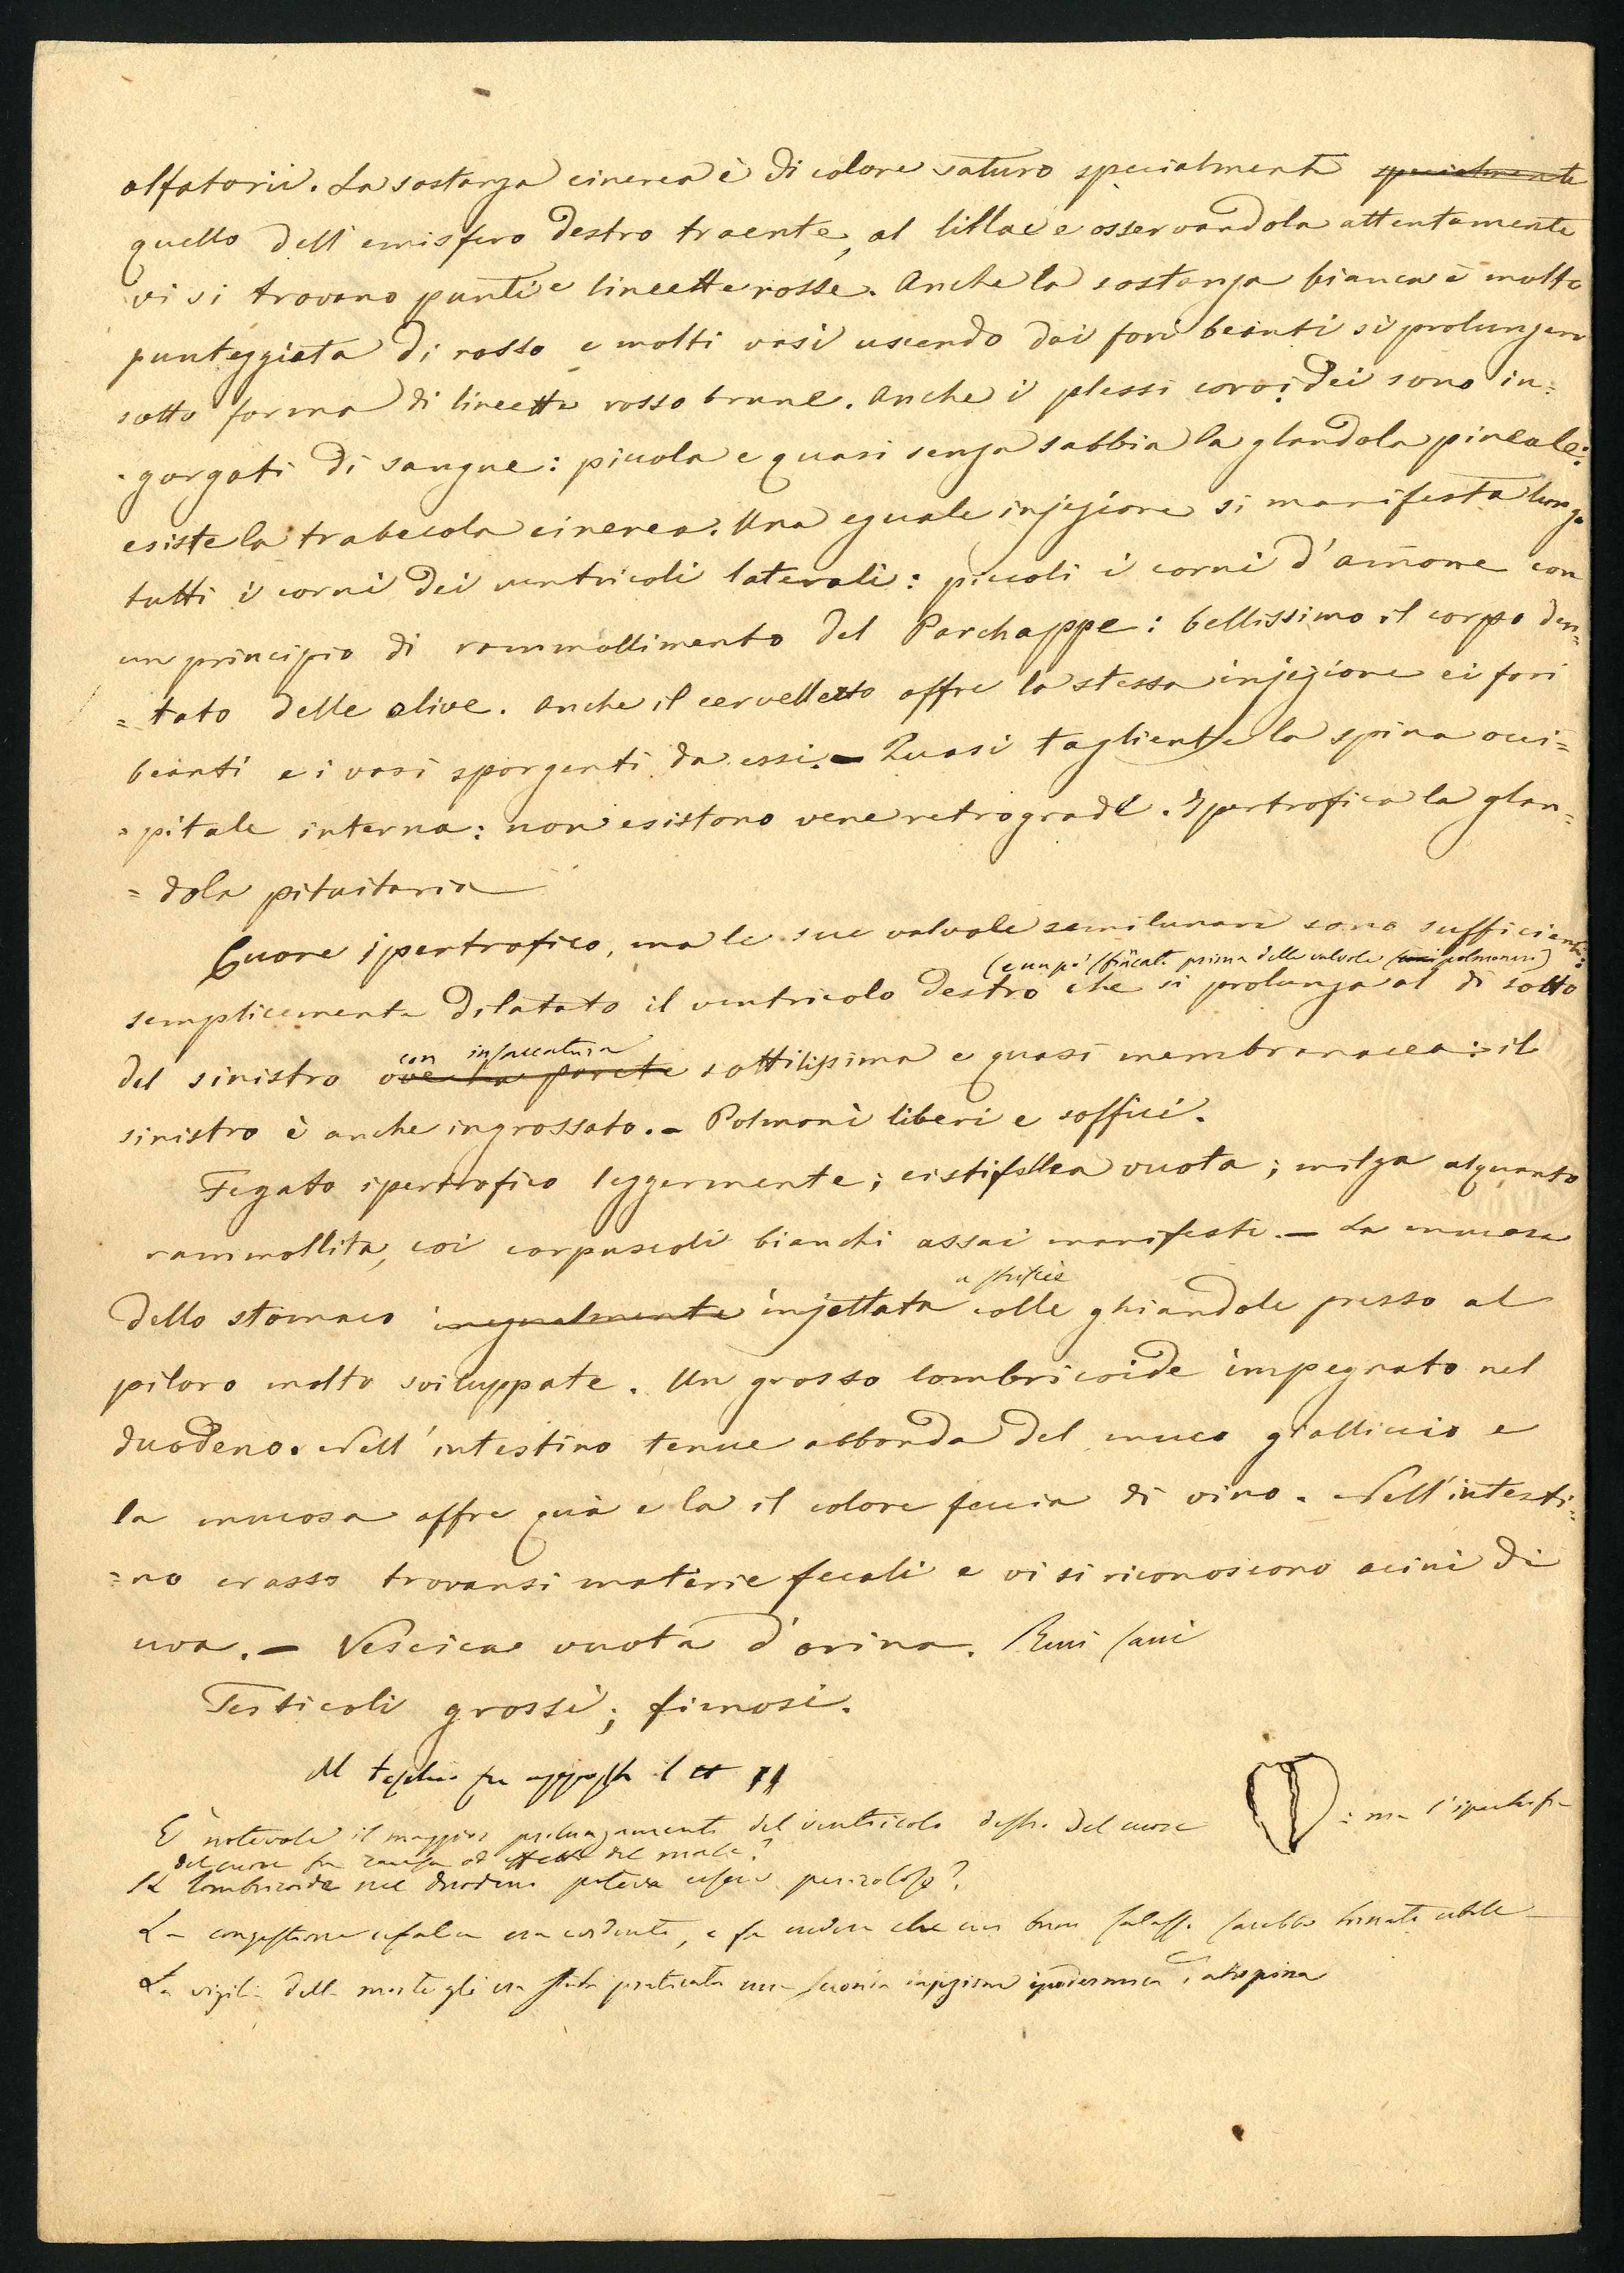 olfatorii. La sostanza cinerea è di colore saturo specialmente specialmente
quello dell'emisfero destro traente, al lillac e osservandola attentamente
vi si trovano punti e lineette rosse. Anche la sostanza bianca è molto
punteggiata di rosso e molti vasi uscendo dai fori beanti si prolungano
sotto forma di lineette rosso brune. Anche i plessi coroidei sono in=
=gorgati di sangue: piccola e quasi senza sabbia la glandola pineale:
esiste la trabecola cinerea. Una eguale injezione si manifesta lungo
tutti i corni dei ventricoli laterali: piccoli i corni d'amone con
un principio di rammollimento del Parchappe: bellissimo il corpo den=
=tato delle olive. Anche il cervelletto offre la stessa injezione ei fori
beanti e i vasi sporgenti da essi. – Quasi tagliente la spina occi=
=pitale interna: non esistono vene retrograde. Ipertrofica la glan=
=dola pituitaria
Cuore ipertrofico, ma le sue valvole semilunari sono sufficienti:
(e un pò sfiancato prima delle valvole polmonari)
semplicemente dilatato il ventricolo destro che si prolunga al di sotto
con insaccatura
del sinistro ove la parete sottilissima e quasi membranacea: il
sinistro è anche ingrossato. – Polmoni liberi e soffici.
Fegato ipertrofico leggermente; cistifellea vuota; milza alquanto
rammollita, coi corpuscoli bianchi assai manifesti. – La mucosa
a striscie
dello stomaco inegualmente injettata colle ghiandole presso al
piloro molto sviluppate. Un grosso lombricoide impegnato nel
duodeno. Nell'intestino tenue abbonda del muco gialliccio e
la mucosa offre quà e la il colore feccia di vino. Nell'intesti=
=no crasso trovansi materie fecali e vi si riconoscono acini di
uva. – Vescica vuota d'orina. Reni sani
Testicoli grossi; fimosi.
Al teschio fu apposto il
È notevole il maggior prolungamento del ventricolo destro del cuore : ma l'ipertrofia
del cuore fu causa od effetto del male?
Il lombricoide nel duodeno poteva essere pericoloso?
La congestione cefalica era evidente, e fa credere che un buon salasso sarebbe tornato utile –
La vigilia della morte gli era stata praticata una injezione ipodermica d'atropina